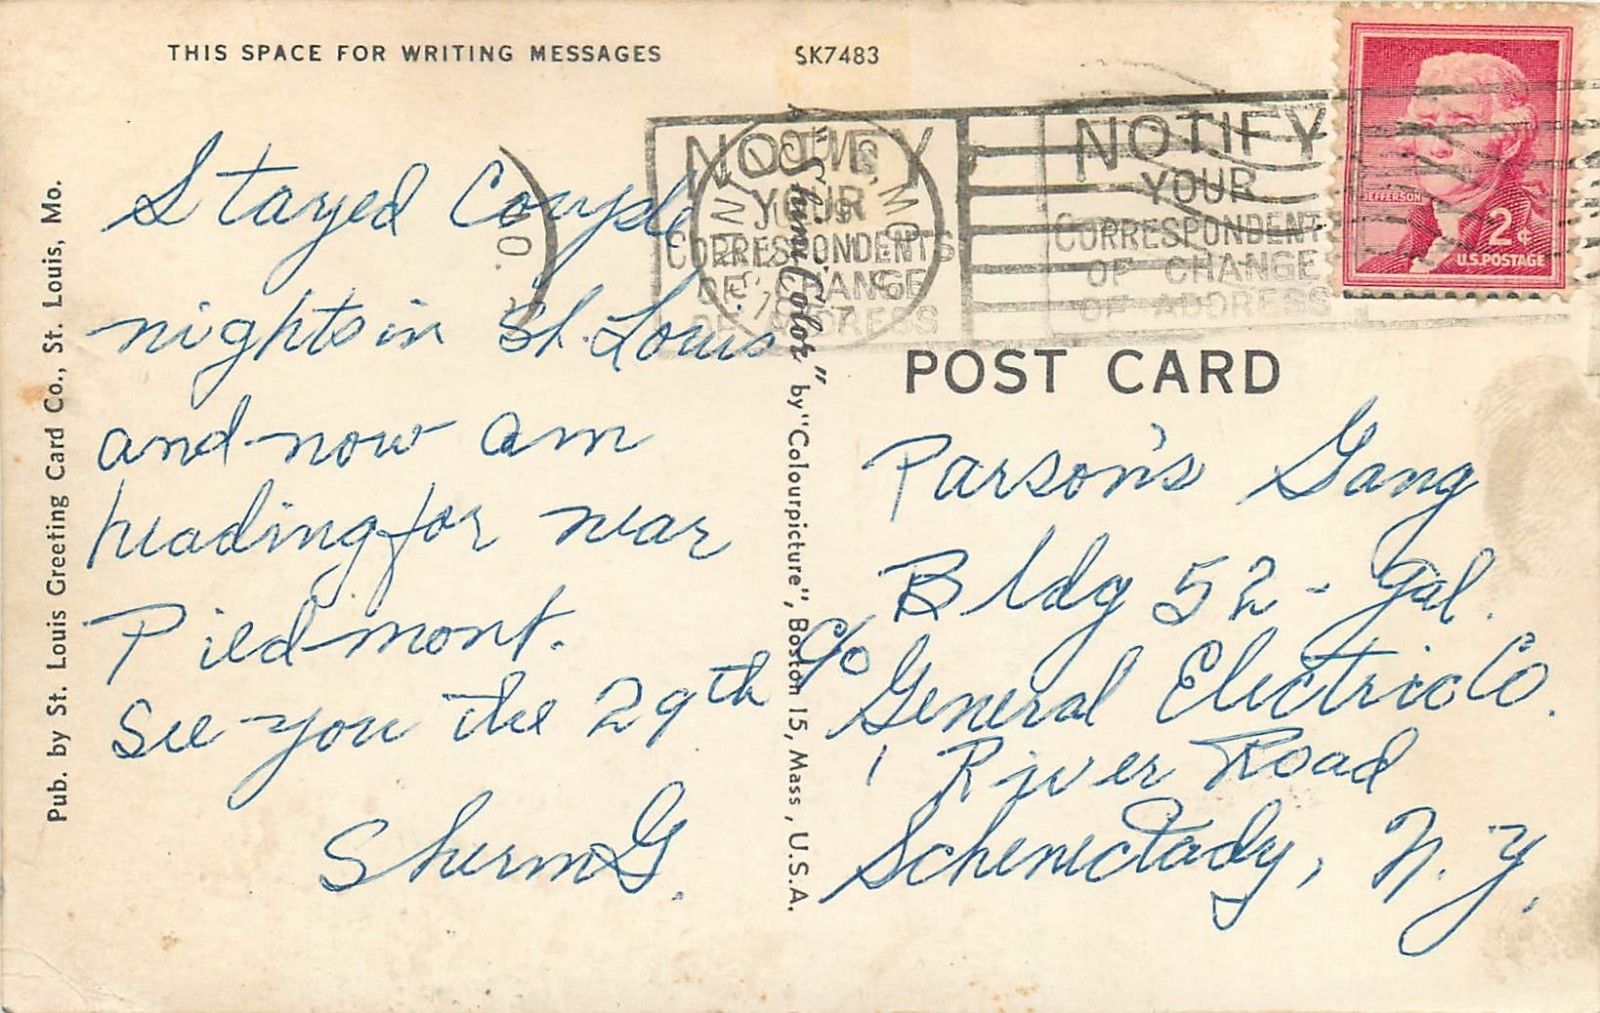 THIS SPACE FOR WRITING MESSAGES
SK7483
Stayed Couple
nights in St. Louis
and now am
heading for near
Piedmont.
See you the 29th
Sherm G.
Pub. by St. Louis Greeting Card Co., St. Louis, Mo.
A "Shini-Color" by "Colourpicture", Boston 15, Mass., U.S.A.
NOTIFY
YOUR
CORRESPONDENTS
OF CHANGE
OF ADDRESS
NOTIFY
YOUR
CORRESPONDENT
OF CHANGE
OF ADDRESS
JEFFERSON
2¢
U.S. POSTAGE
POST CARD
Parson's Gang
Bldg 52 - Gal.
c/o General Electric Co.
1 River Road
Schenectady, N.Y.